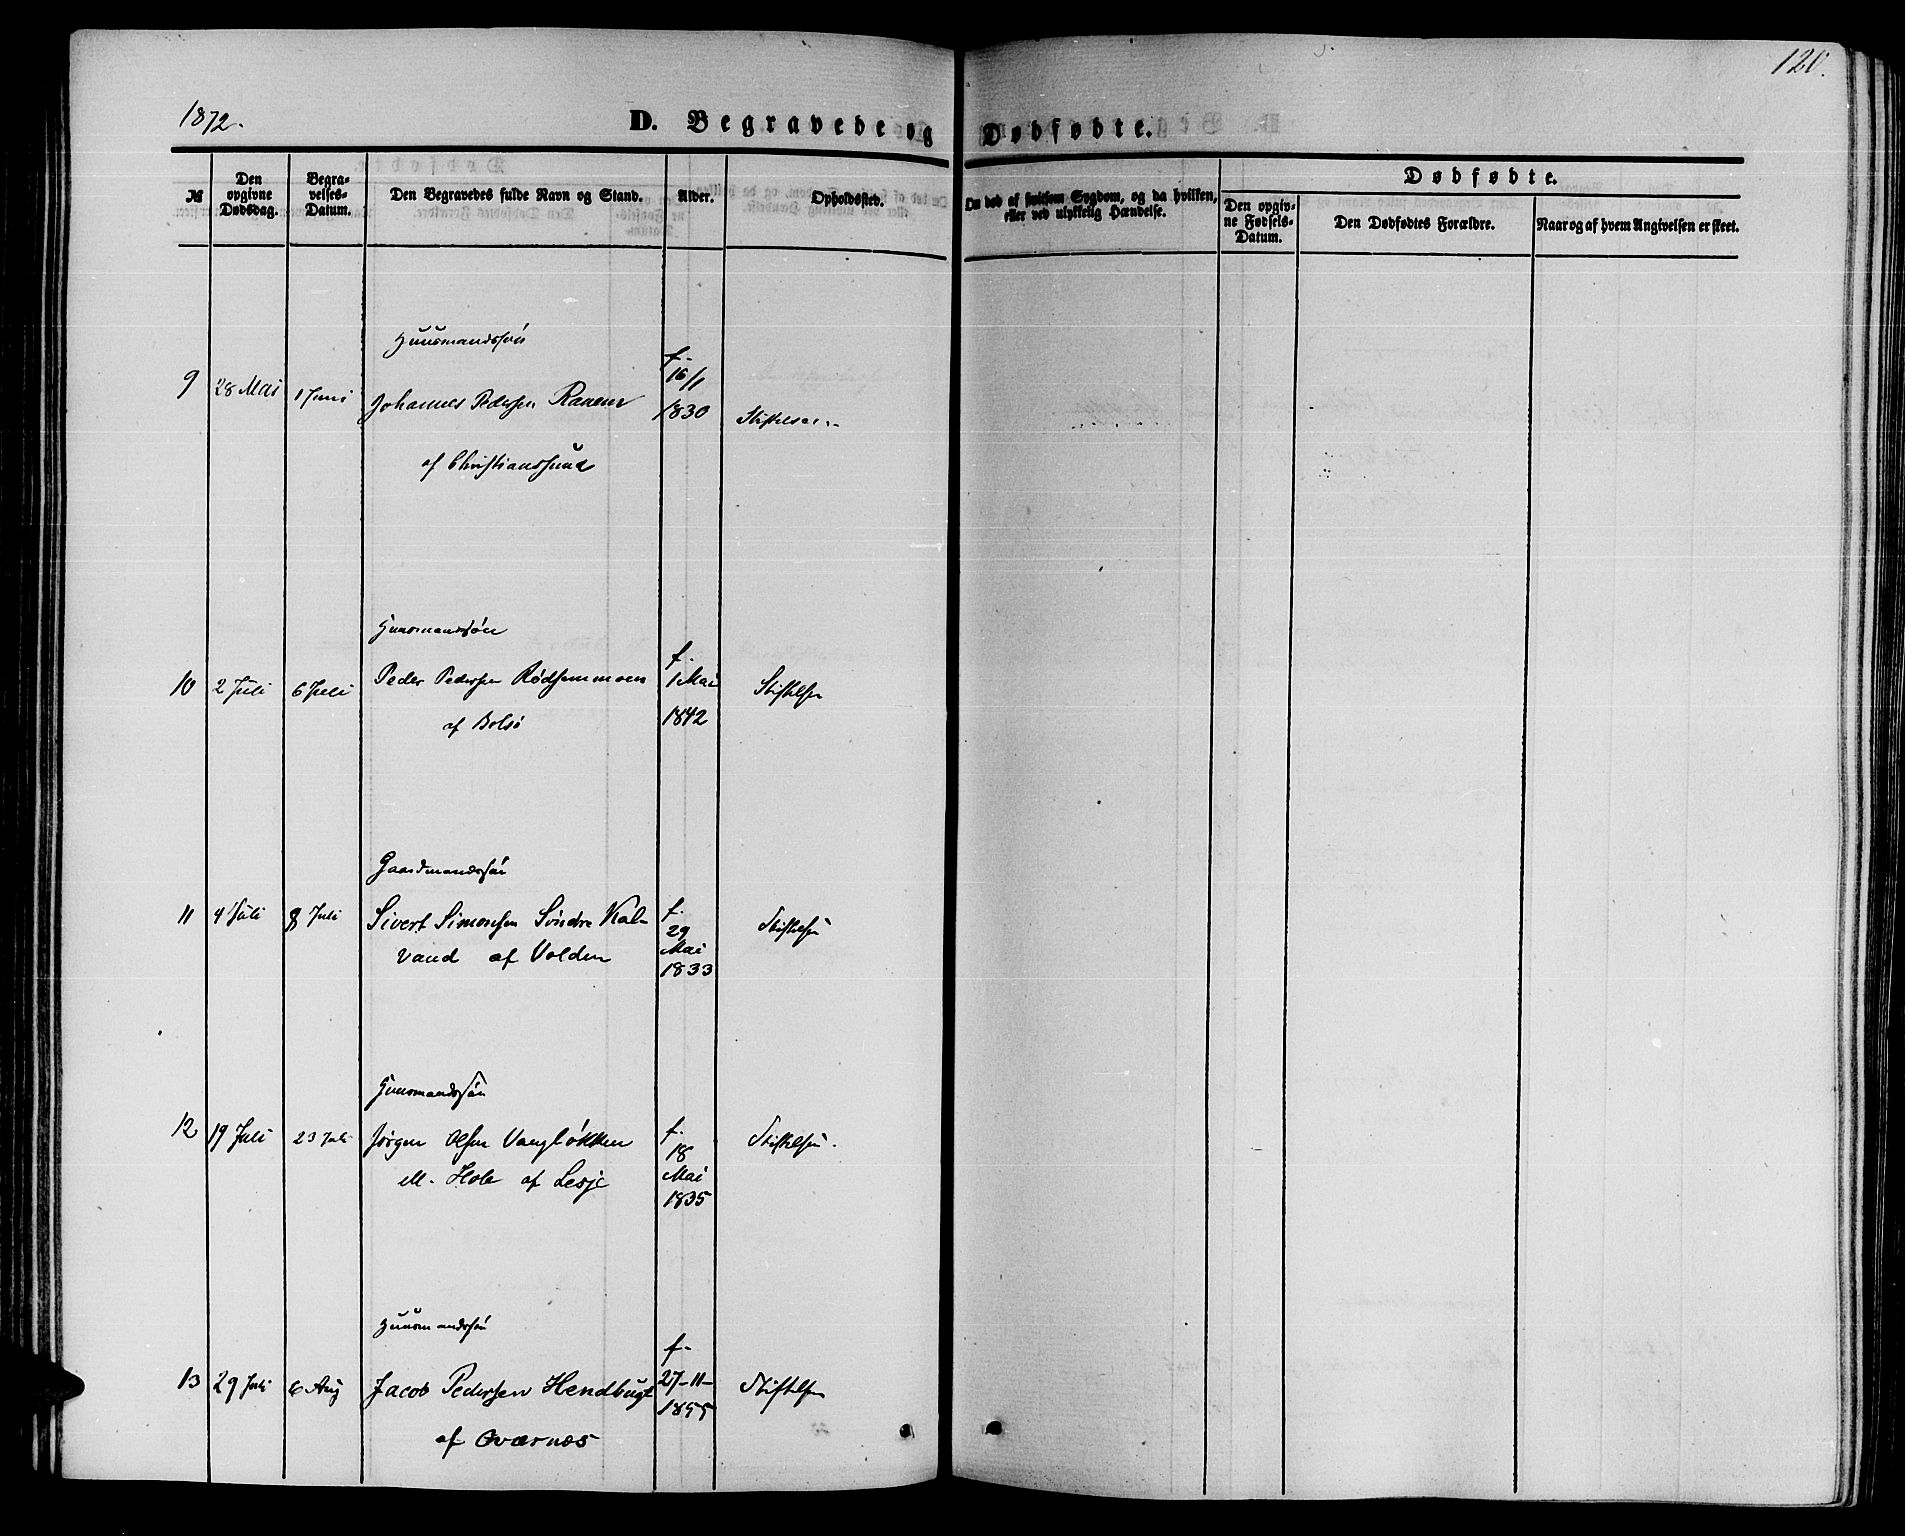 120.
1872.
D. Begravede og Dødfødte.
№
Den opgivne Dødsdag.
Begravelses-Datum.
Den Begravedes fulde Navn og Stand.
Alder.
Opholdssted.
Om død af smitsom Sygdom, og da hvilken, eller ved ulykkelig Hændelse.
Dødfødte.
Den opgivne Fødsels-Datum.
Den Dødfødtes Forældre.
Naar og af hvem Angivelsen er skeet.
Huusmandssøn
9 28 Mai 1 Juni Johannes Pedersen f. 16/1 1830 Stiftelsen
af Christianssund
Huusmandssøn
10 2 Juli 6 Juli Peder Pedersen Rødsemmoen f. 1 Mai 1842 Stiftelsen
af Bolsø
Gaardmandssøn
11 4 Juli 8 Juli Sivert Simonsen Søndre Kal-
vand af Volden f. 29 Mai 1833 Stiftelsen
Huusmandssøn
12 19 Juli 23 Juli Jørgen Olsen Vangløkken f. 18 Mai 1835 Stiftelsen.
M. Hole af Lesje
Huusmandssøn
13 29 Juli 6 Aug Jacob Pedersen Hendbugt f. 27-11-1855 Stiftelsen
af Qværnæs